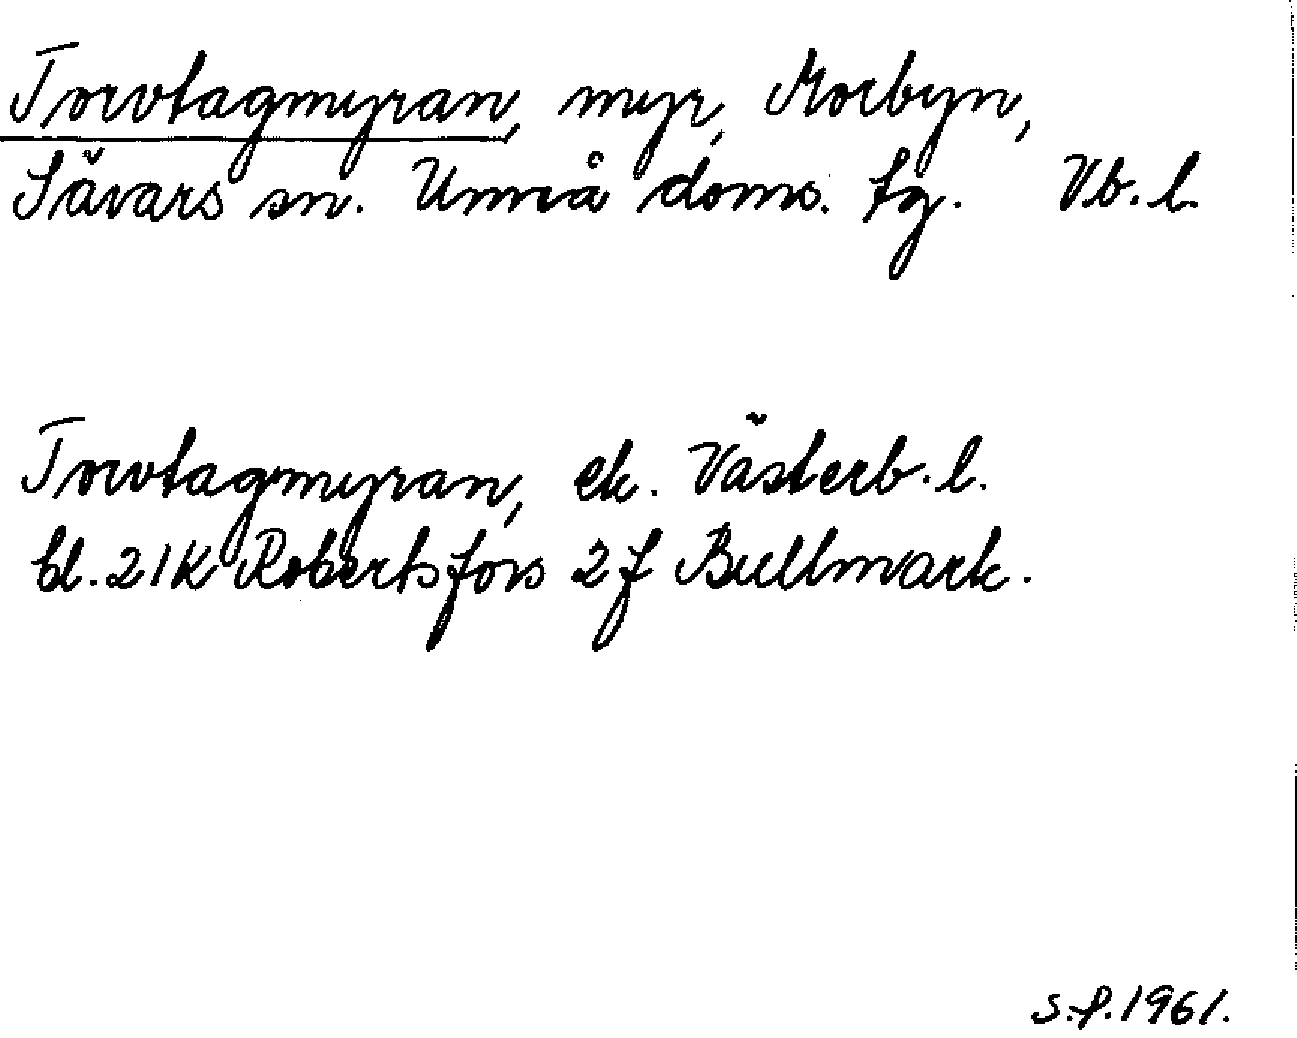 Torvtagmyran, myr, Morbyn,
Sävars sn. Umeå doms. tg. Vb. l.
Torvtagmyran, ek. Västerb. l.
bl. 21K Robertsfors 2f Bullmark.
S.f. 1961.